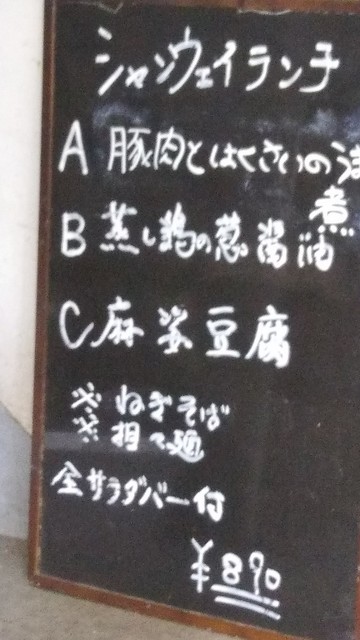 シャンウェイランチ
A 豚肉とはくさいのうま
煮
B 蒸し鶏の葱醤油
C 麻婆豆腐
※ ねぎそば
※ 担々麺
全サラダバー付
¥890